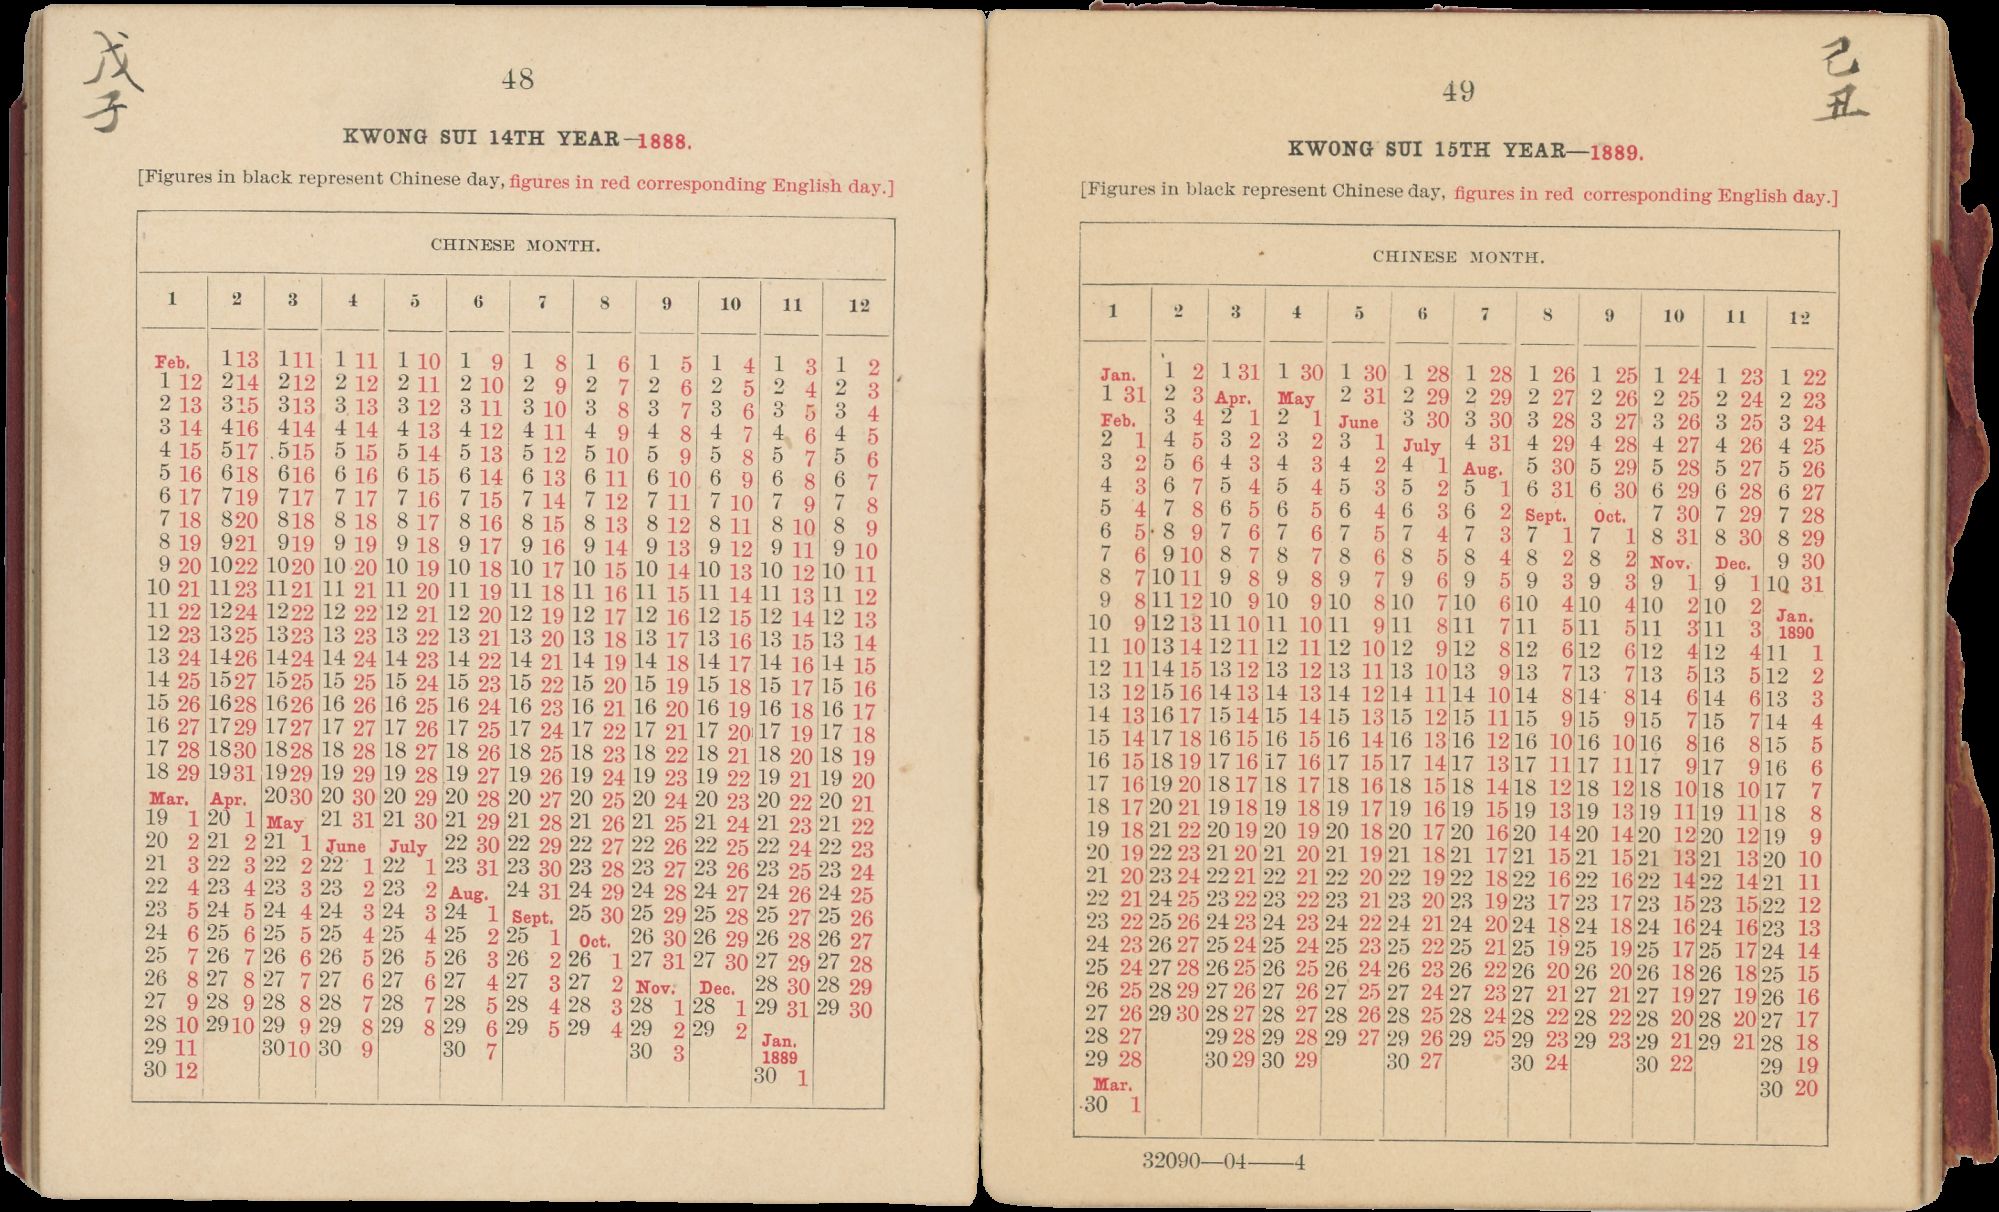 戊子
48
KWONG SUI 14TH YEAR—1888.
[Figures in black represent Chinese day, figures in red corresponding English day.]
CHINESE MONTH.
1 2 3 4 5 6 7 8 9 10 11 12
Feb. 1 13 1 11 1 11 1 10 1 9 1 8 1 6 1 5 1 4 1 3 1 2
1 12 2 14 2 12 2 12 2 11 2 10 2 9 2 7 2 6 2 5 2 4 2 3
2 13 3 15 3 13 3 13 3 12 3 11 3 10 3 8 3 7 3 6 3 5 3 4
3 14 4 16 4 14 4 14 4 13 4 12 4 11 4 9 4 8 4 7 4 6 4 5
4 15 5 17 5 15 5 15 5 14 5 13 5 12 5 10 5 9 5 8 5 7 5 6
5 16 6 18 6 16 6 16 6 15 6 14 6 13 6 11 6 10 6 9 6 8 6 7
6 17 7 19 7 17 7 17 7 16 7 15 7 14 7 12 7 11 7 10 7 9 7 8
7 18 8 20 8 18 8 18 8 17 8 16 8 15 8 13 8 12 8 11 8 10 8 9
8 19 9 21 9 19 9 19 9 18 9 17 9 16 9 14 9 13 9 12 9 11 9 10
9 20 10 22 10 20 10 20 10 19 10 18 10 17 10 15 10 14 10 13 10 12 10 11
10 21 11 23 11 21 11 21 11 20 11 19 11 18 11 16 11 15 11 14 11 13 11 12
11 22 12 24 12 22 12 22 12 21 12 20 12 19 12 17 12 16 12 15 12 14 12 13
12 23 13 25 13 23 13 23 13 22 13 21 13 20 13 18 13 17 13 16 13 15 13 14
13 24 14 26 14 24 14 24 14 23 14 22 14 21 14 19 14 18 14 17 14 16 14 15
14 25 15 27 15 25 15 25 15 24 15 23 15 22 15 20 15 19 15 18 15 17 15 16
15 26 16 28 16 26 16 26 16 25 16 24 16 23 16 21 16 20 16 19 16 18 16 17
16 27 17 29 17 27 17 27 17 26 17 25 17 24 17 22 17 21 17 20 17 19 17 18
17 28 18 30 18 28 18 28 18 27 18 26 18 25 18 23 18 22 18 21 18 20 18 19
18 29 19 31 19 29 19 29 19 28 19 27 19 26 19 24 19 23 19 22 19 21 19 20
Mar. Apr. 20 30 20 30 20 29 20 28 20 27 20 25 20 24 20 23 20 22 20 21
19 1 20 1 May 21 31 21 30 21 29 21 28 21 26 21 25 21 24 21 23 21 22
20 2 21 2 21 1 June July 22 30 22 29 22 27 22 26 22 25 22 24 22 23
21 3 22 3 22 2 22 1 22 1 23 31 23 30 23 28 23 27 23 26 23 25 23 24
22 4 23 4 23 3 23 2 23 2 Aug. 24 31 24 29 24 28 24 27 24 26 24 25
23 5 24 5 24 4 24 3 24 3 24 1 Sept. 25 30 25 29 25 28 25 27 25 26
24 6 25 6 25 5 25 4 25 4 25 2 25 1 Oct. 26 30 26 29 26 28 26 27
25 7 26 7 26 6 26 5 26 5 26 3 26 2 26 1 27 31 27 30 27 29 27 28
26 8 27 8 27 7 27 6 27 6 27 4 27 3 27 2 Nov. Dec. 28 30 28 29
27 9 28 9 28 8 28 7 28 7 28 5 28 4 28 3 28 1 28 1 29 31 29 30
28 10 29 10 29 9 29 8 29 8 29 6 29 5 29 4 29 2 29 2 Jan.
29 11 30 10 30 9 30 7 30 3 1889
30 12 30 1
己丑
49
KWONG SUI 15TH YEAR—1889.
[Figures in black represent Chinese day, figures in red corresponding English day.]
CHINESE MONTH.
1 2 3 4 5 6 7 8 9 10 11 12
Jan. 1 2 1 31 1 30 1 30 1 28 1 28 1 26 1 25 1 24 1 23 1 22
1 31 2 3 Apr. May 2 31 2 29 2 29 2 27 2 26 2 25 2 24 2 23
Feb. 3 4 2 1 2 1 June 3 30 3 30 3 28 3 27 3 26 3 25 3 24
2 1 4 5 3 2 3 2 3 1 July 4 31 4 29 4 28 4 27 4 26 4 25
3 2 5 6 4 3 4 3 4 2 4 1 Aug. 5 30 5 29 5 28 5 27 5 26
4 3 6 7 5 4 5 4 5 3 5 2 5 1 6 31 6 30 6 29 6 28 6 27
5 4 7 8 6 5 6 5 6 4 6 3 6 2 Sept. Oct. 7 30 7 29 7 28
6 5 8 9 7 6 7 6 7 5 7 4 7 3 7 1 7 1 8 31 8 30 8 29
7 6 9 10 8 7 8 7 8 6 8 5 8 4 8 2 8 2 Nov. Dec. 9 30
8 7 10 11 9 8 9 8 9 7 9 6 9 5 9 3 9 3 9 1 9 1 10 31
9 8 11 12 10 9 10 9 10 8 10 7 10 6 10 4 10 4 10 2 10 2 Jan.
10 9 12 13 11 10 11 10 11 9 11 8 11 7 11 5 11 5 11 3 11 3 1890
11 10 13 14 12 11 12 11 12 10 12 9 12 8 12 6 12 6 12 4 12 4 11 1
12 11 14 15 13 12 13 12 13 11 13 10 13 9 13 7 13 7 13 5 13 5 12 2
13 12 15 16 14 13 14 13 14 12 14 11 14 10 14 8 14 8 14 6 14 6 13 3
14 13 16 17 15 14 15 14 15 13 15 12 15 11 15 9 15 9 15 7 15 7 14 4
15 14 17 18 16 15 16 15 16 14 16 13 16 12 16 10 16 10 16 8 16 8 15 5
16 15 18 19 17 16 17 16 17 15 17 14 17 13 17 11 17 11 17 9 17 9 16 6
17 16 19 20 18 17 18 17 18 16 18 15 18 14 18 12 18 12 18 10 18 10 17 7
18 17 20 21 19 18 19 18 19 17 19 16 19 15 19 13 19 13 19 11 19 11 18 8
19 18 21 22 20 19 20 19 20 18 20 17 20 16 20 14 20 14 20 12 20 12 19 9
20 19 22 23 21 20 21 20 21 19 21 18 21 17 21 15 21 15 21 13 21 13 20 10
21 20 23 24 22 21 22 21 22 20 22 19 22 18 22 16 22 16 22 14 22 14 21 11
22 21 24 25 23 22 23 22 23 21 23 20 23 19 23 17 23 17 23 15 23 15 22 12
23 22 25 26 24 23 24 23 24 22 24 21 24 20 24 18 24 18 24 16 24 16 23 13
24 23 26 27 25 24 25 24 25 23 25 22 25 21 25 19 25 19 25 17 25 17 24 14
25 24 27 28 26 25 26 25 26 24 26 23 26 22 26 20 26 20 26 18 26 18 25 15
26 25 28 29 27 26 27 26 27 25 27 24 27 23 27 21 27 21 27 19 27 19 26 16
27 26 29 30 28 27 28 27 28 26 28 25 28 24 28 22 28 22 28 20 28 20 27 17
28 27 29 28 29 28 29 27 29 26 29 25 29 23 29 23 29 21 29 21 28 18
29 28 30 29 30 29 30 27 30 24 30 22 29 19
Mar. 30 20
30 1
32090—04——4